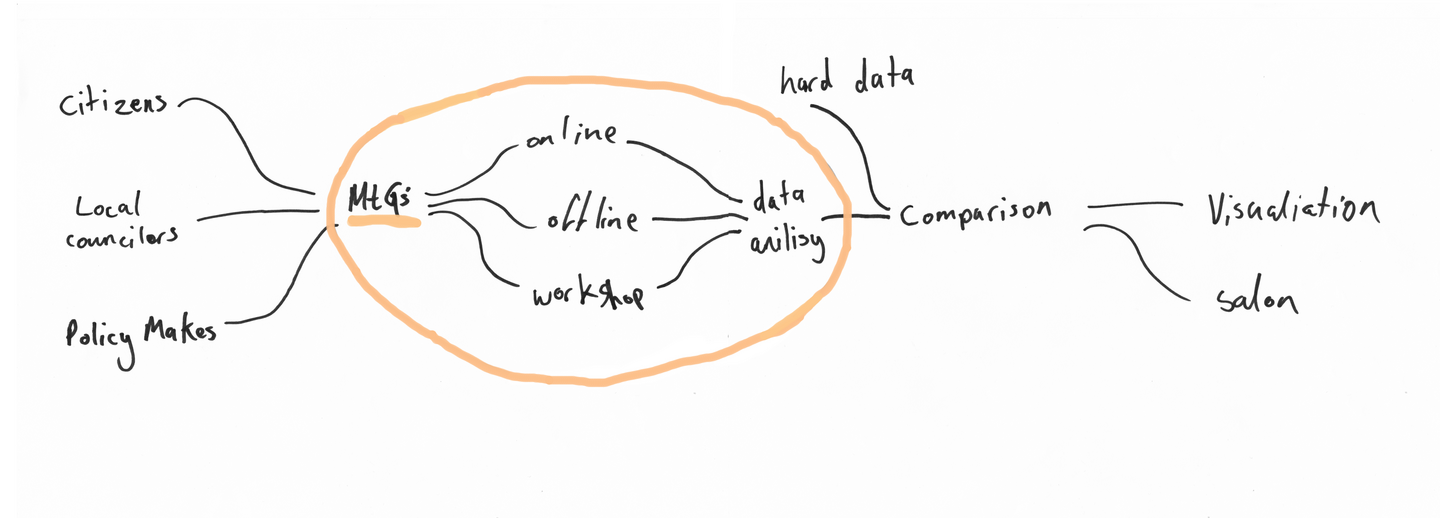 Citizens
Local
councilors
Policy Makes
MtGs
online
offline
workshop
data
anilisy
hard data
Comparison
Visualiation
salon